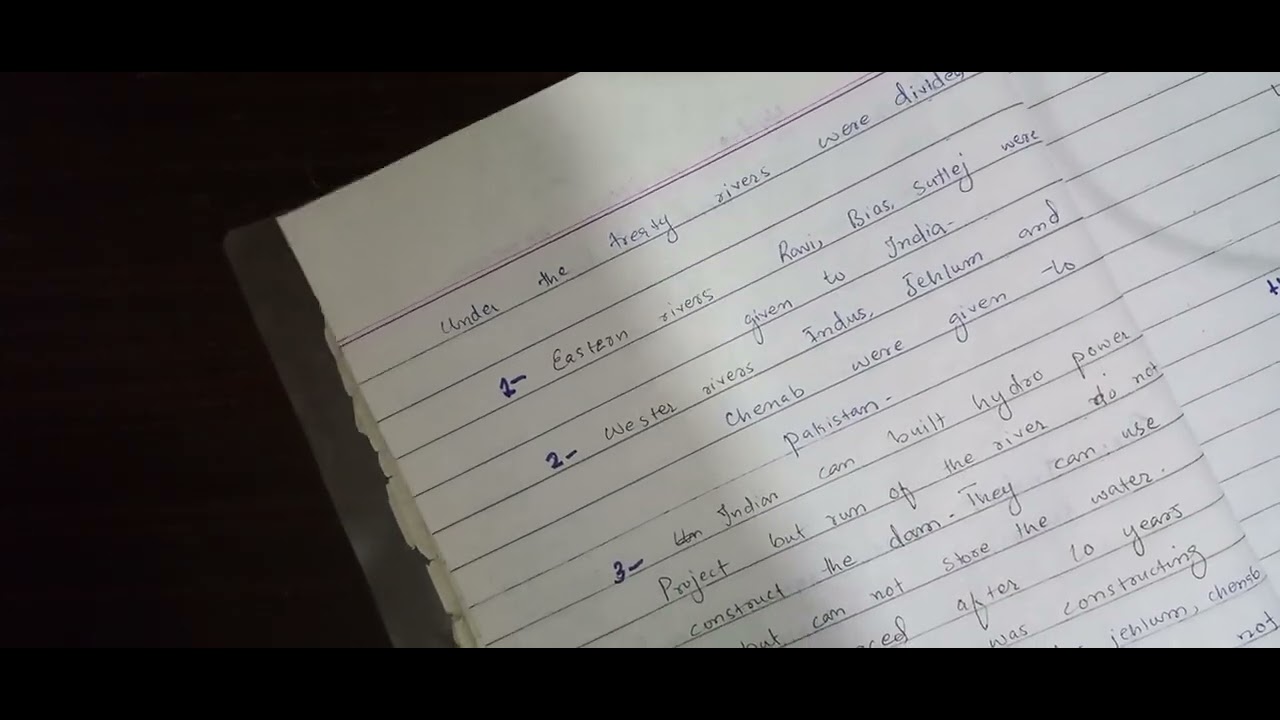 Under the treaty rivers were divided
1- Eastern rivers Ravi, Bias, Sutlej were
given to India-
2- Wester rivers Indus, Jehlum and
Chenab were given to
Pakistan-
3- Indian can built hydro power
Project but run of the river do not
construct the dam- They can use
but can not store the water.
after 10 years
was constructing
jehlum, chenab
not